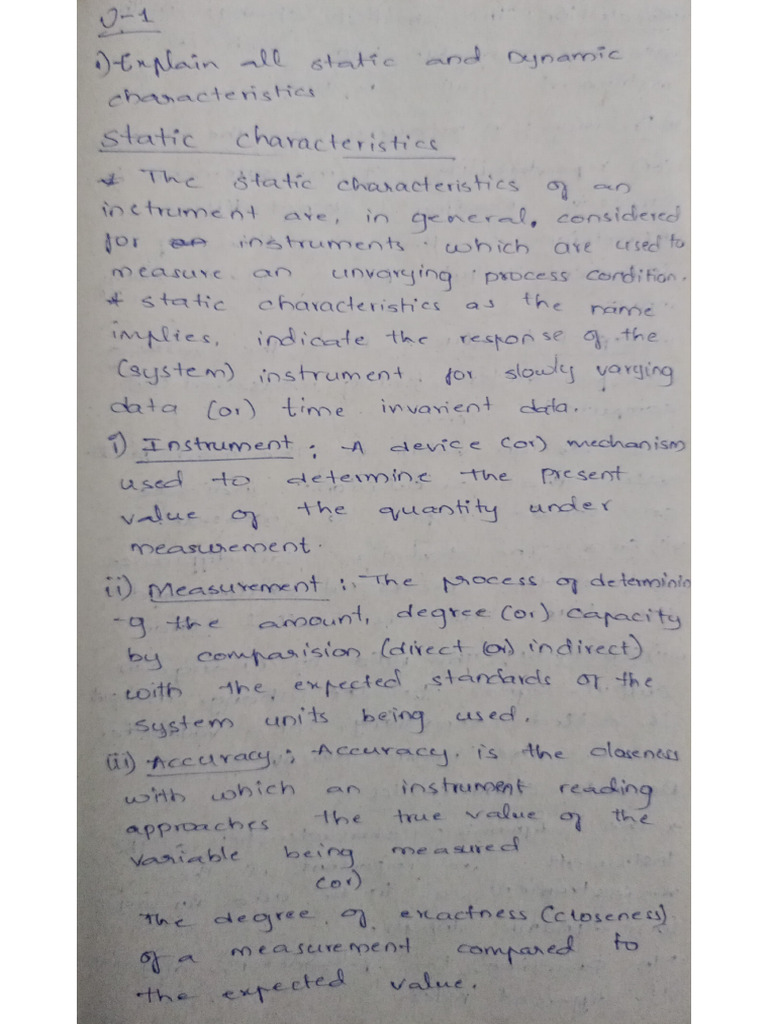 U-1
1) Explain all static and Dynamic
characteristics.
Static characteristics
* The static characteristics of an
instrument are, in general, considered
for instruments which are used to
measure an unvarying process condition.
* static characteristics as the name
implies, indicate the response of the
(system) instrument for slowly varying
data (or) time invarient data.
i) Instrument : A device (or) mechanism
used to determine the present
value of the quantity under
measurement.
ii) Measurement : The process of determinin
-g the amount, degree (or) capacity
by comparision (direct (or) indirect)
with the expected standards of the
system units being used.
iii) Accuracy : Accuracy is the closeness
with which an instrument reading
approaches the true value of the
variable being measured
(or)
The degree of exactness (closeness)
of a measurement compared to
the expected value.